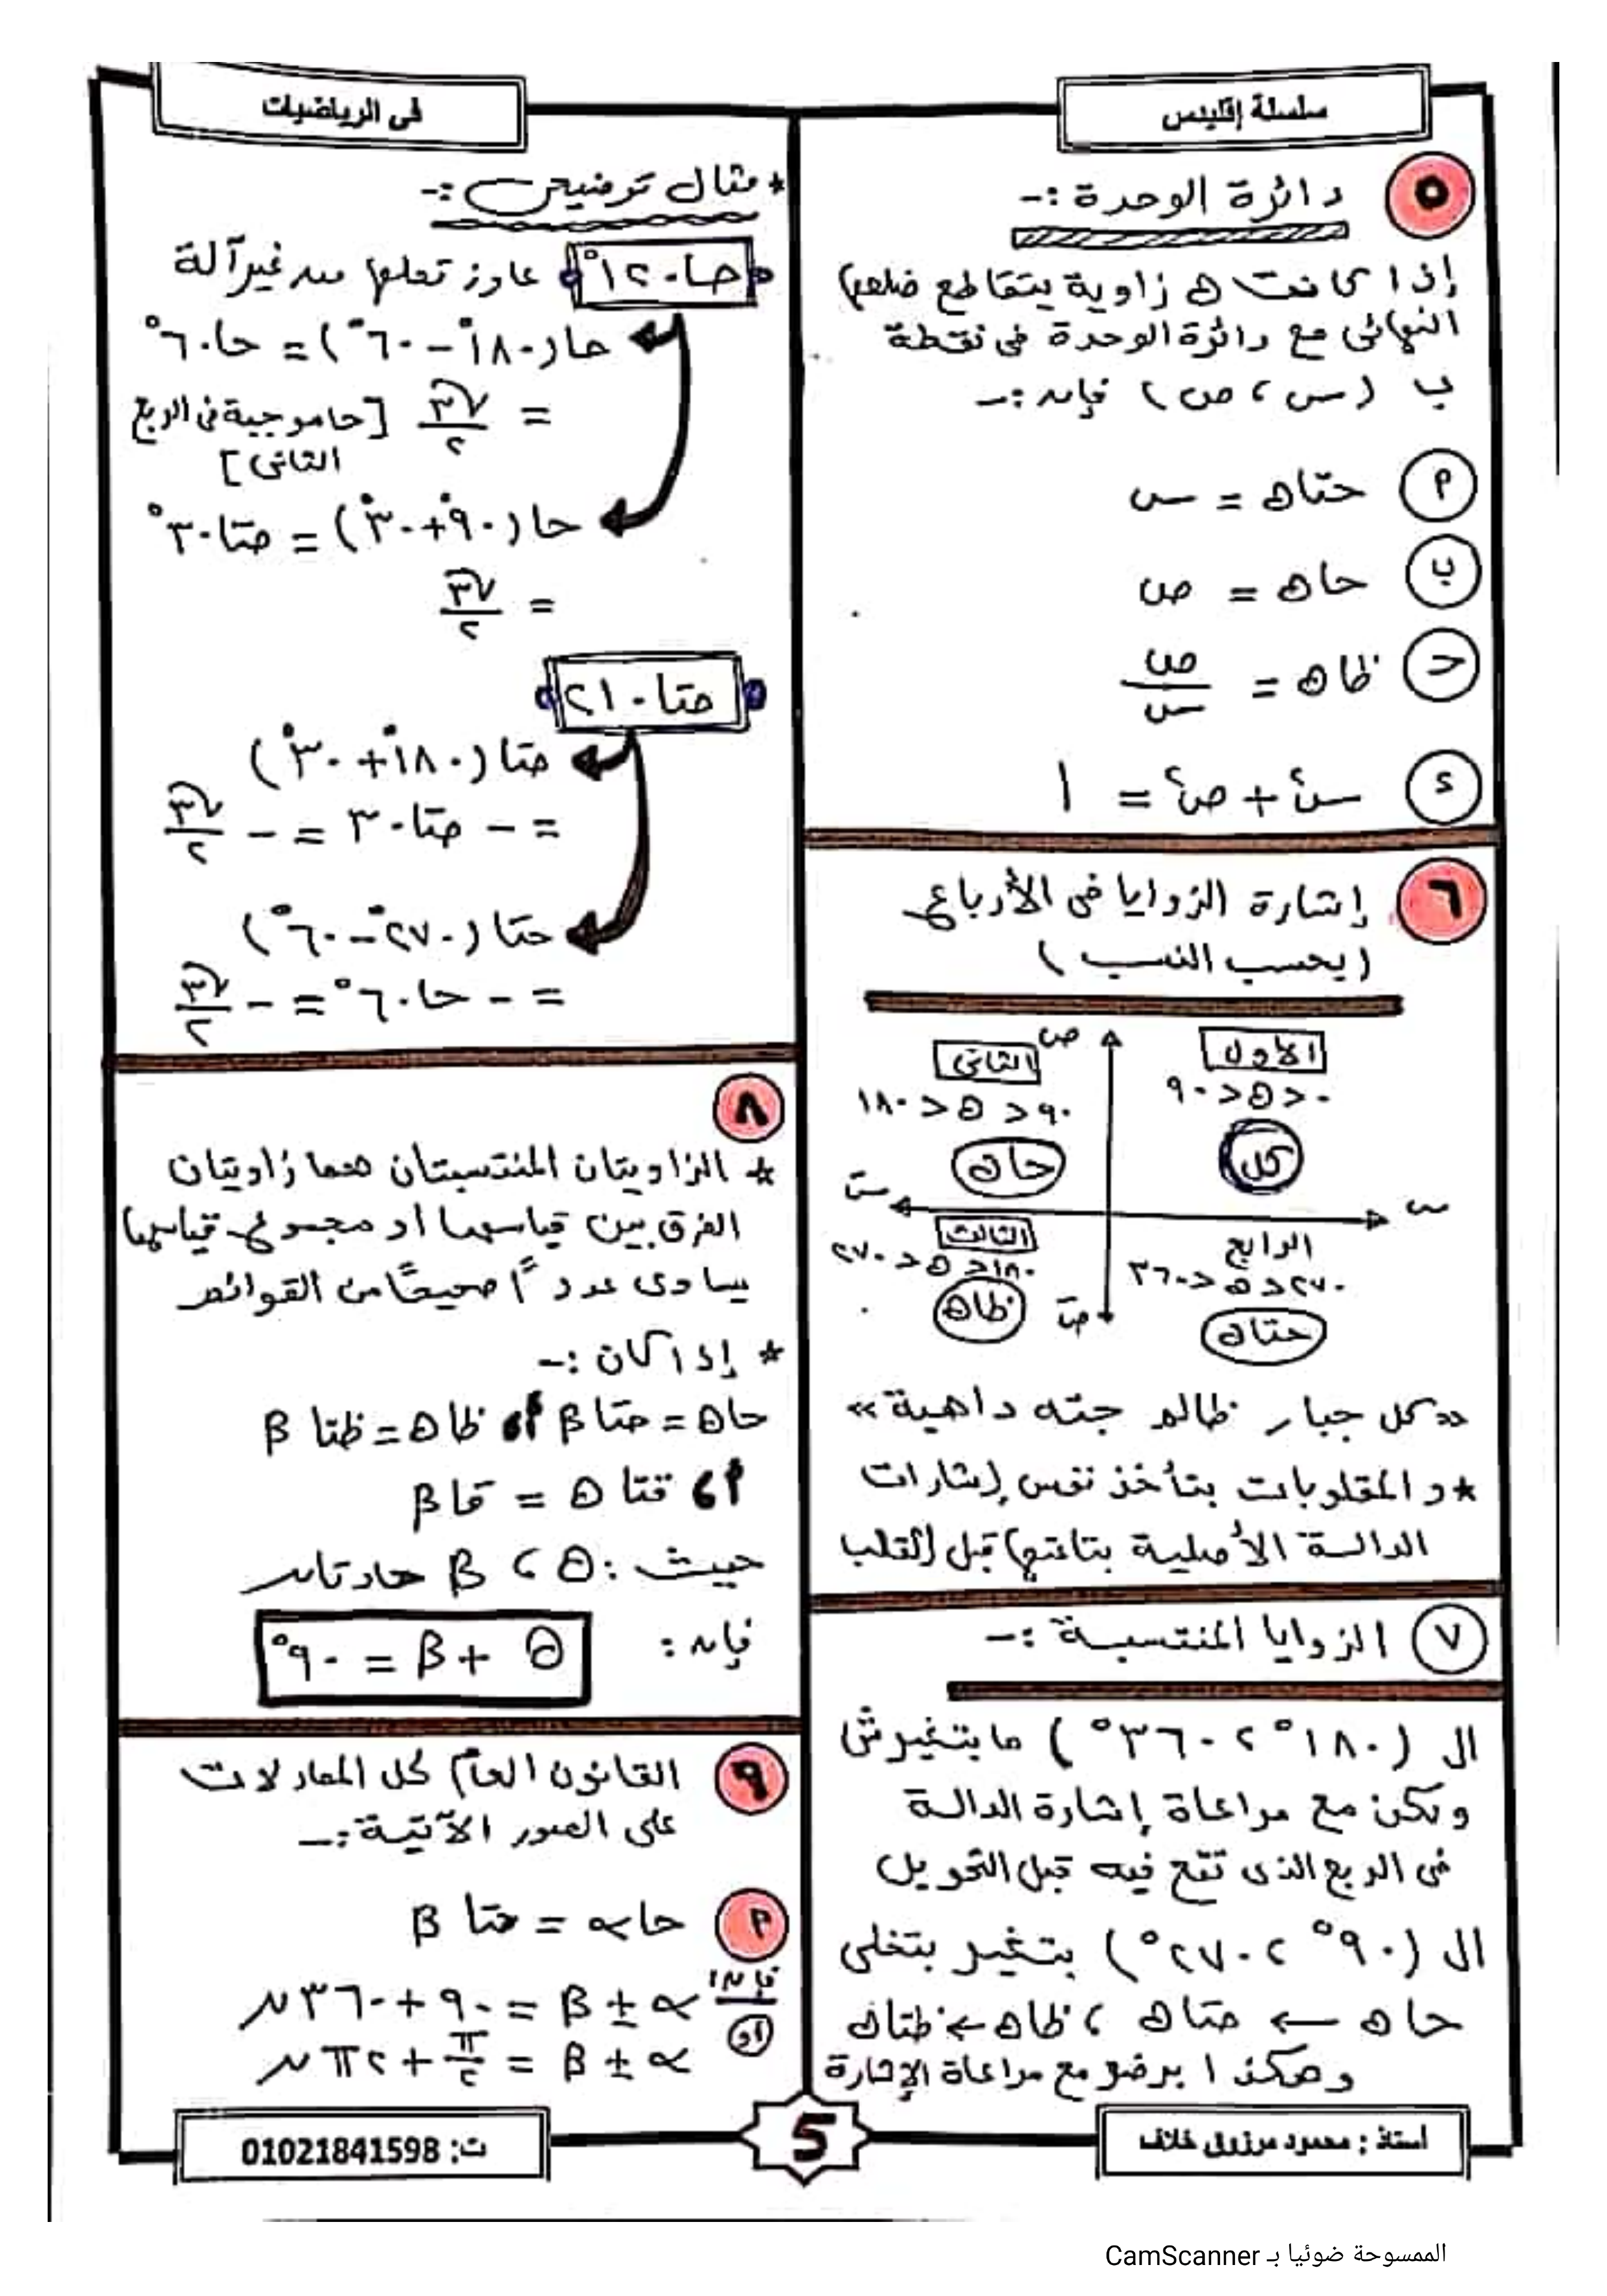 سلسلة إقليدس
فى الرياضيات
٥ دائرة الوحدة :-
إذا كانت ه زاوية يتقاطع ضلعها
النهائى مع دائرة الوحدة فى نقطة
ب (س ، ص) فإنه :-
م حتاه = س
ب حاه = ص
حـ ظاه = ص/س
ء س٢ + ص٢ = ١
٦ إشارة الزوايا فى الأرباع
(بحسب النسب)
ص
الأول
٠ < ه < ٩٠
كل
الثانى
٩٠ < ه < ١٨٠
حاه
سَ
س
الثالث
١٨٠ < ه < ٢٧٠
ظاه
الرابع
٢٧٠ < ه < ٣٦٠
حتاه
صَ
«كل جبار ظالم جته داهية»
* و المقلوبات بتأخذ نفس إشارات
الدالة الأصلية بتاعتها قبل القلب
٧ الزوايا المنتسبة :-
ال (١٨٠° ، ٣٦٠°) مابتغيرش
ولكن مع مراعاة إشارة الدالة
فى الربع الذى تقع فيه قبل التحويل
ال (٩٠° ، ٢٧٠°) بتغير بتخلى
حاه ← حتاه ، ظاه ← ظتاه
وهكذا برضو مع مراعاة الإشارة
* مثال توضيحى :-
حا١٢٠° عاوز تعملها من غير آلة
حا(١٨٠° - ٦٠°) = حا٦٠°
= √٣/٢ [حا موجبة فى الربع
الثانى]
حا(٩٠° + ٣٠°) = حتا٣٠°
= √٣/٢
حتا٢١٠
حتا(١٨٠° + ٣٠°)
= - حتا٣٠ = - √٣/٢
حتا(٢٧٠° - ٦٠°)
= - حا٦٠° = - √٣/٢
٨
* الزاويتان المنتسبتان هما زاويتان
الفرق بين قياسهما أو مجموع قياسهما
يساوى عدداً صحيحًا من القوائم
* إذا كان :-
حاθ = حتاβ أ، ظاθ = ظتاβ
أ، قتاθ = قاβ
حيث : θ ، β حادتان
فإن : θ + β = ٩٠°
٩ القانون العام كل المعادلات
على الصور الآتية :-
م حاα = حتاβ
فإن: α ± β = ٩٠ + ٣٦٠ن
أو α ± β = π/٢ + ٢πن
أستاذ : محمود مرزوق خلاف
5
ت: 01021841598
الممسوحة ضوئيا بـ CamScanner